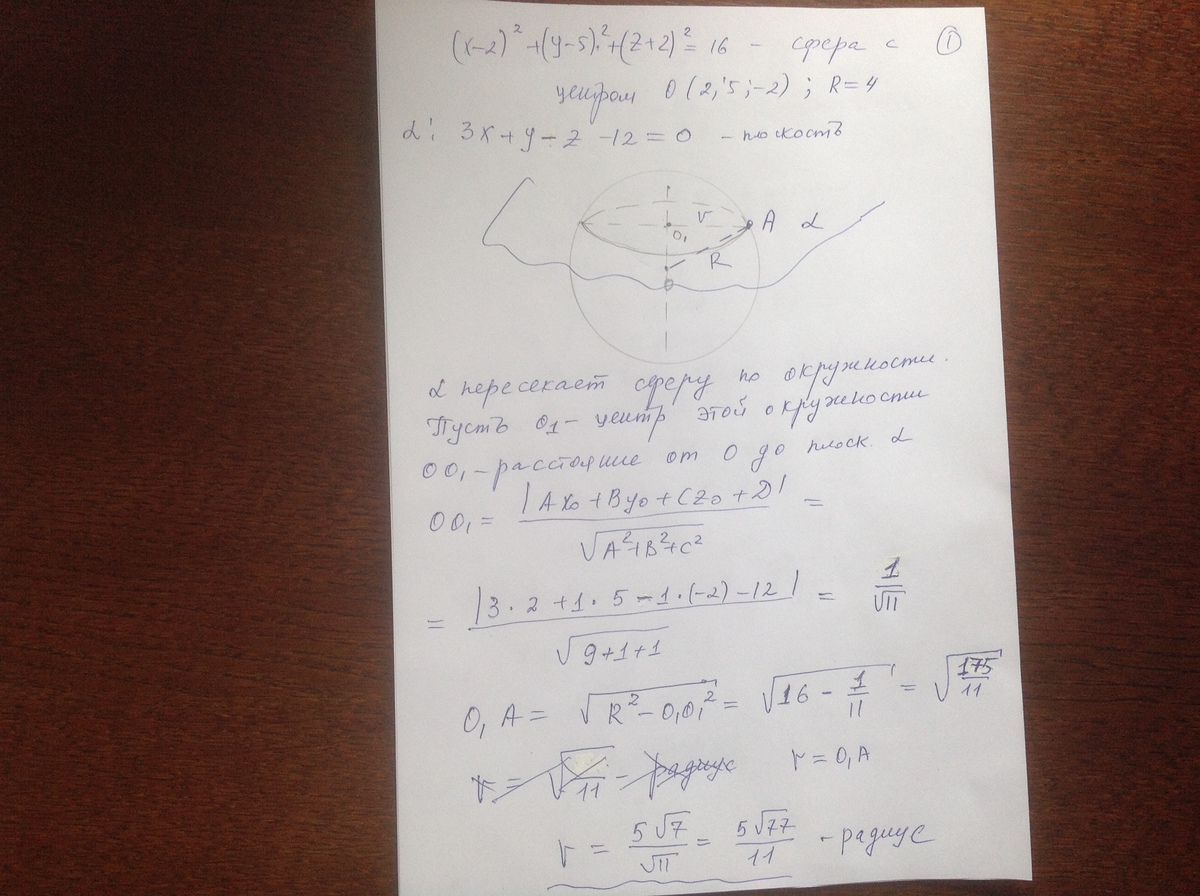 (x-2)² + (y-5)² + (z+2)² = 16 - сфера с ①
центром O (2; 5; -2) ; R = 4
α: 3x + y - z - 12 = 0 - плоскость
r
O₁
A α
R
O
α пересекает сферу по окружности.
Пусть O₁ - центр этой окружности
OO₁ - расстояние от O до плоск. α
OO₁ = |Ax₀ + By₀ + Cz₀ + D| / √(A² + B² + C²) =
= |3·2 + 1·5 - 1·(-2) - 12| / √(9+1+1) = 1/√11
O₁A = √(R² - O₁O₁²) = √(16 - 1/11) = √(175/11)
r = √(/11) - радиус r = O₁A
r = 5√7/√11 = 5√77/11 - радиус